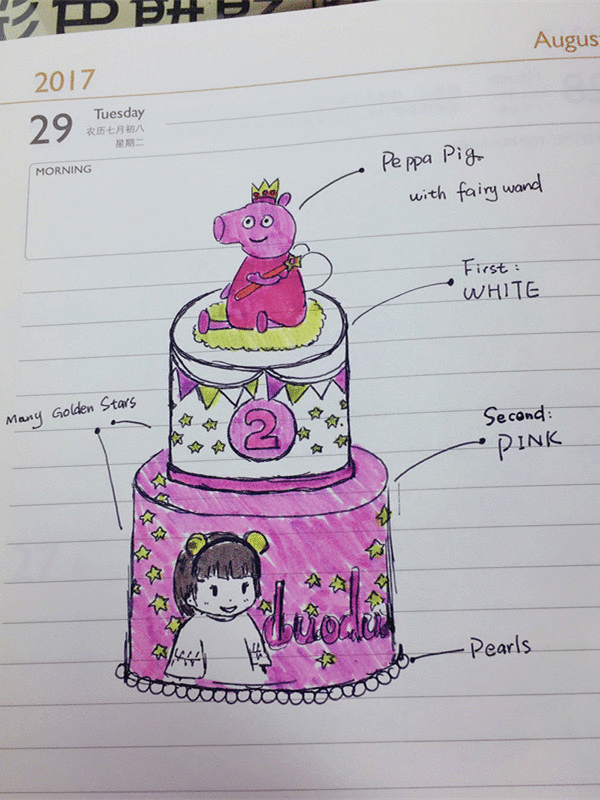 2017
August
29
Tuesday
农历七月初八
星期二
MORNING
Peppa Pig.
with fairy wand
First:
WHITE
Many Golden Stars
2
Second:
PINK
duodu
Pearls